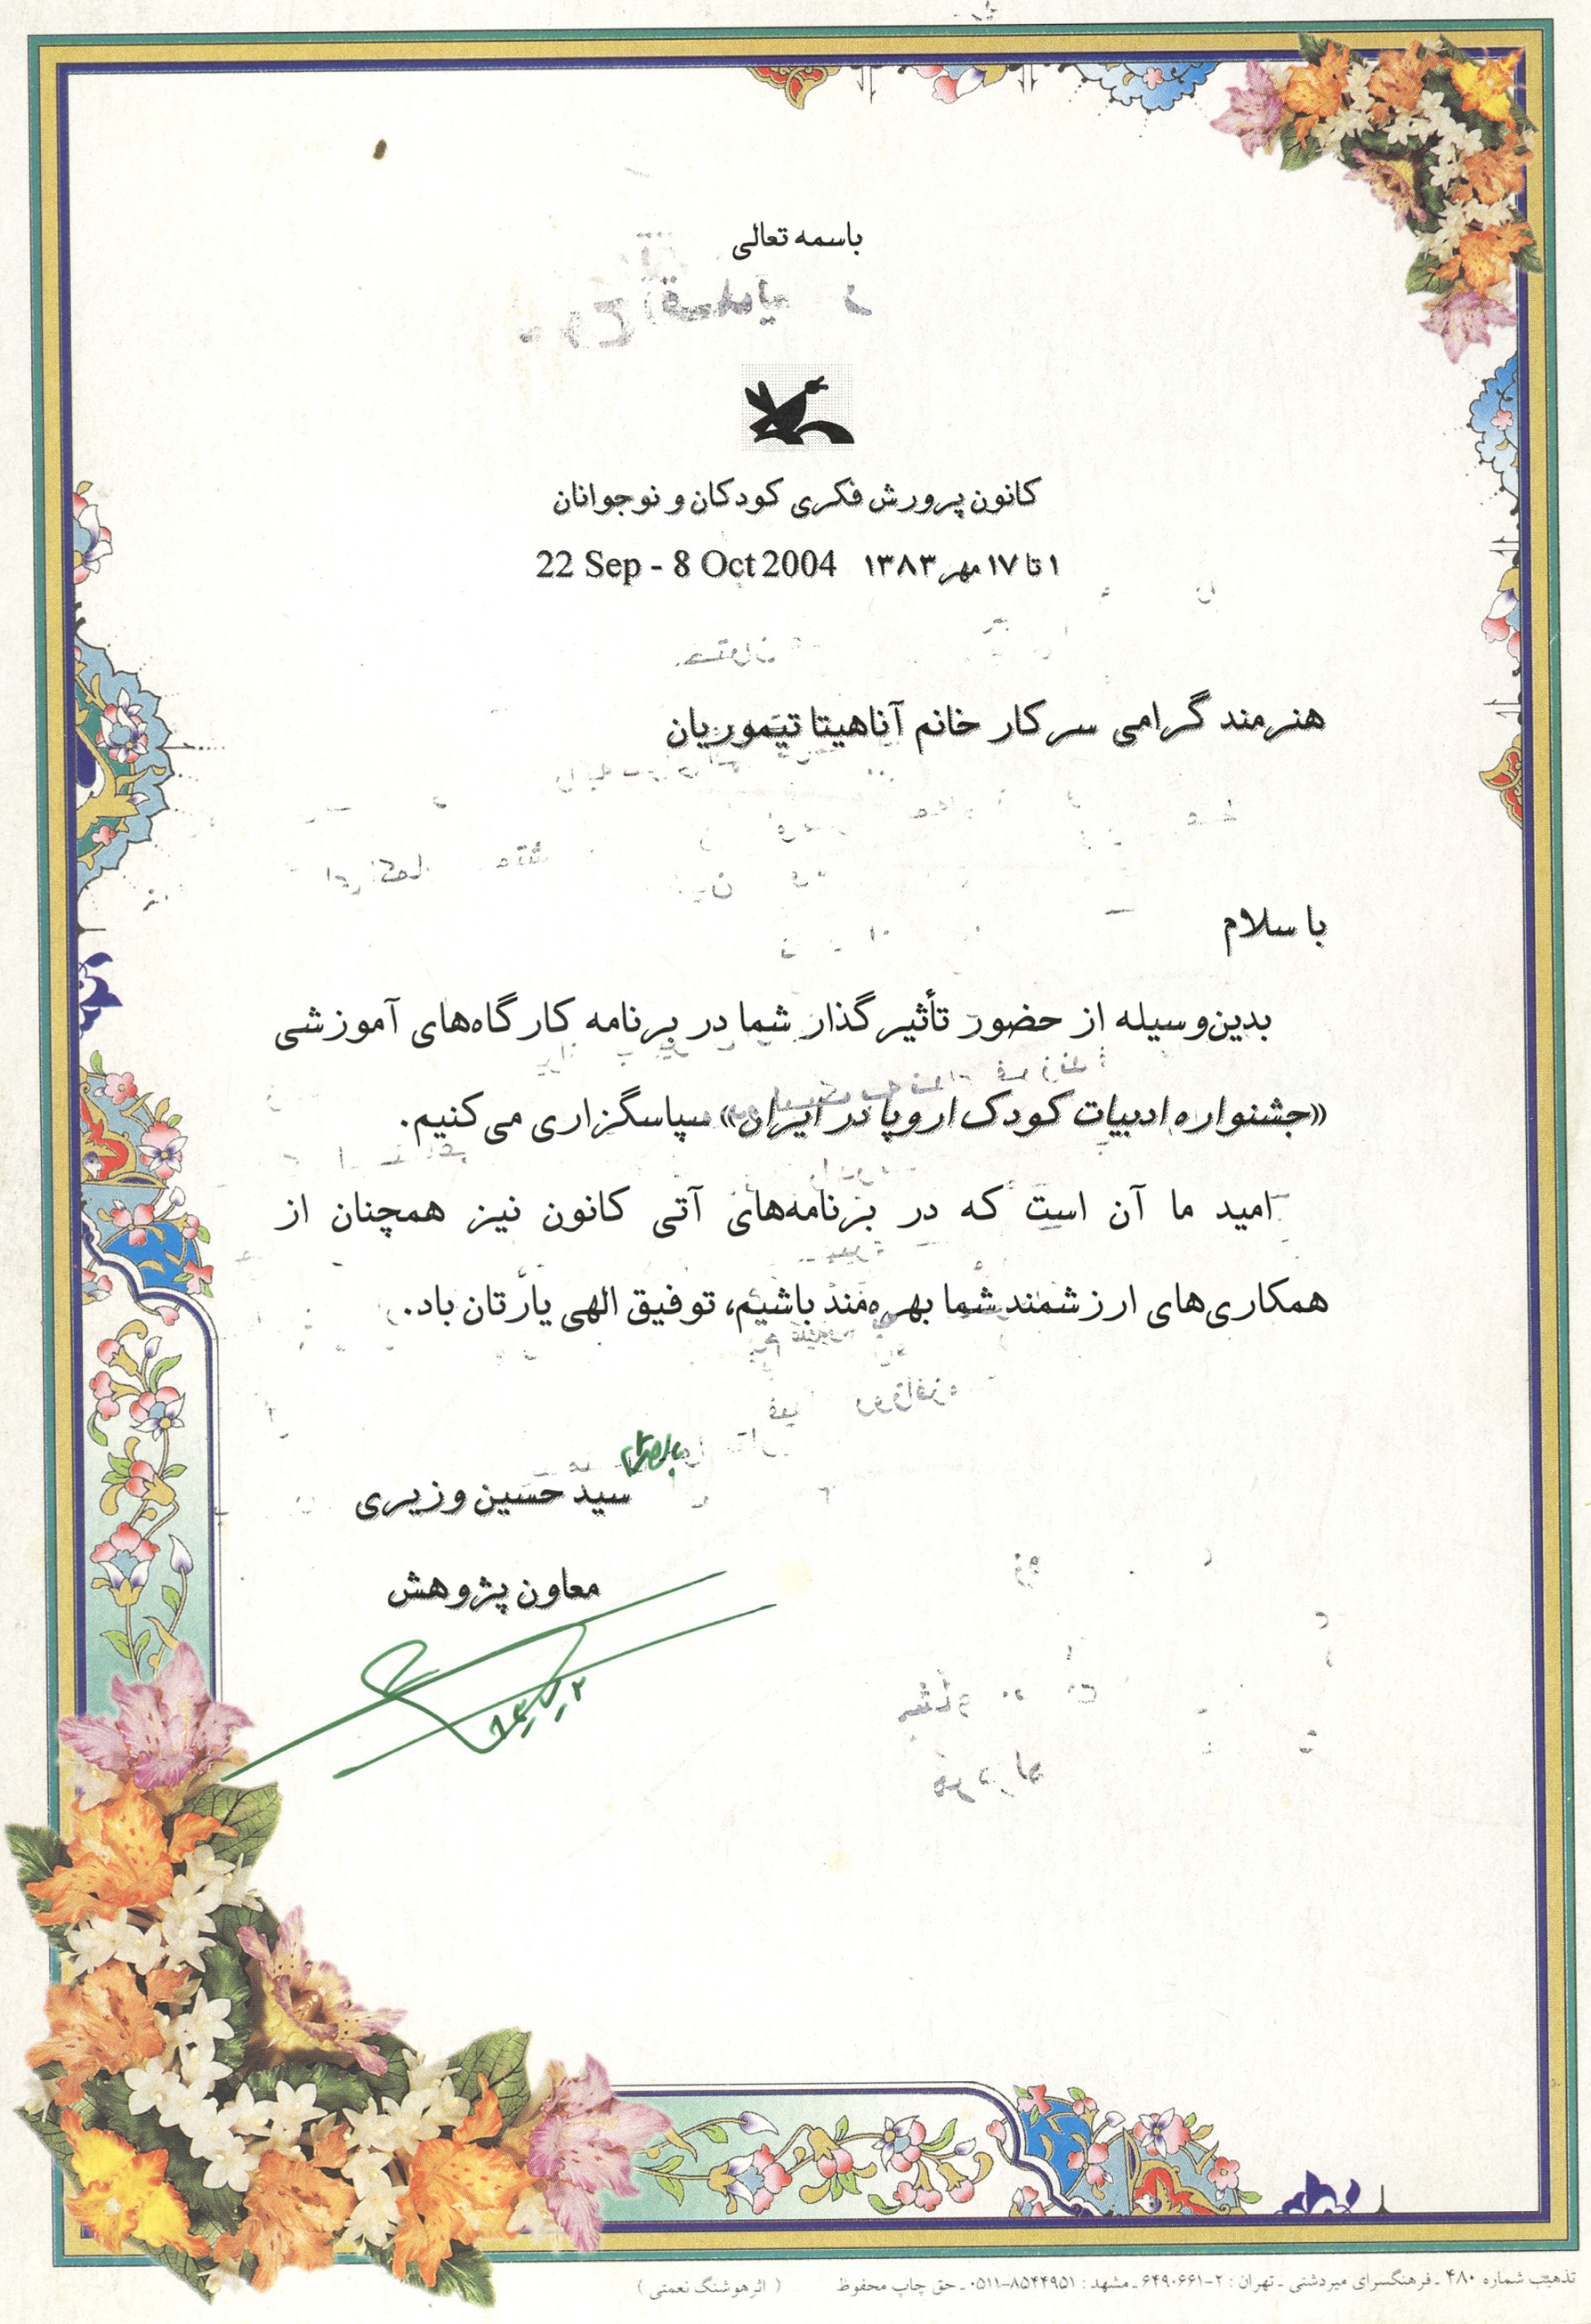 باسمه تعالی
کانون پرورش فکری کودکان و نوجوانان
۱ تا ۱۷ مهر ۱۳۸۳ 22 Sep - 8 Oct 2004
هنرمند گرامی سرکار خانم آناهیتا تیموریان
با سلام
بدین‌وسیله از حضور تأثیرگذار شما در برنامه کارگاه‌های آموزشی
«جشنواره ادبیات کودک اروپا در ایران» سپاسگزاری می‌کنیم.
امید ما آن است که در برنامه‌های آتی کانون نیز همچنان از
همکاری‌های ارزشمند شما بهره‌مند باشیم، توفیق الهی یارتان باد.
سید حسین وزیری
معاون پژوهش
تذهیب شماره ۴۸۰ ـ فرهنگسرای میردشتی ـ تهران : ۲-۶۴۹۰۶۶۱ ـ مشهد : ۸۵۴۴۹۵۱-۰۵۱۱ ـ حق چاپ محفوظ ( اثر هوشنگ نعمتی )